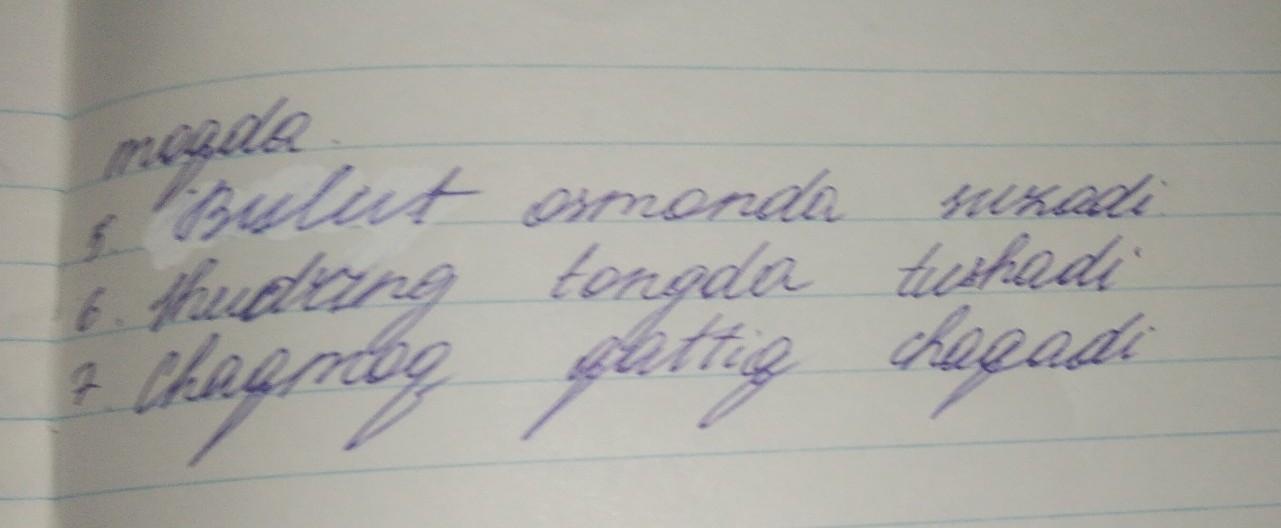 moqda.
5. Bulut osmonda suzadi
6. Shudring tongda tushadi
7. Chaqmoq qattiq chaqadi